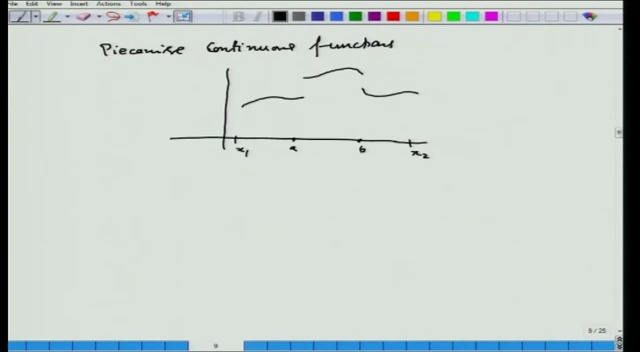 File Edit View Insert Actions Tools Help
B I
Piecewise Continuous functions
x1 a b x2
9 / 25
9